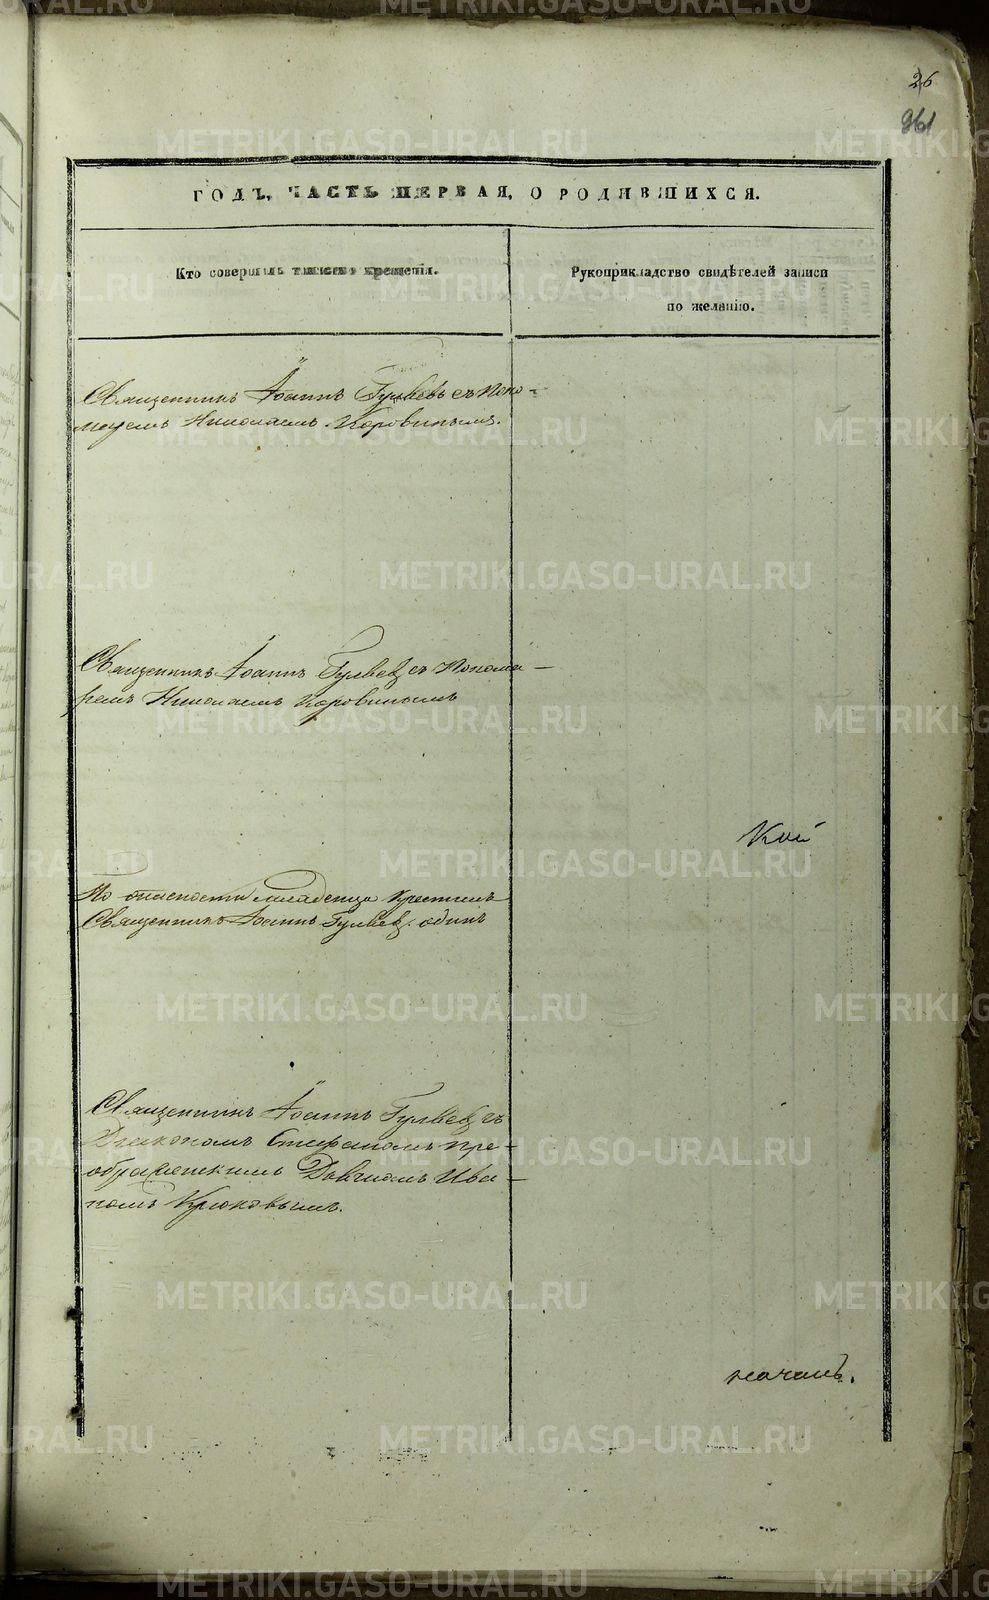 26
961
ГОДЪ, ЧАСТЬ ПЕРВАЯ, О РОДИВШИХСЯ.
Кто совершалъ таинство крещенія.
Рукоприкладство свидѣтелей записи
по желанію.
Священникъ Іоаннъ Гуляевъ съ Поно-
маремъ Николаемъ Коровинымъ.
Священникъ Іоаннъ Гуляевъ съ Понома-
ремъ Николаемъ Коровинымъ
По опасности младенца крестилъ
Священникъ Іоаннъ Гуляевъ одинъ
Священникъ Іоаннъ Гуляевъ съ
Діакономъ Стефаномъ Пре-
ображенскимъ Дьячкомъ Ива-
номъ Крюковымъ.
METRIKI.GASO-URAL.RU